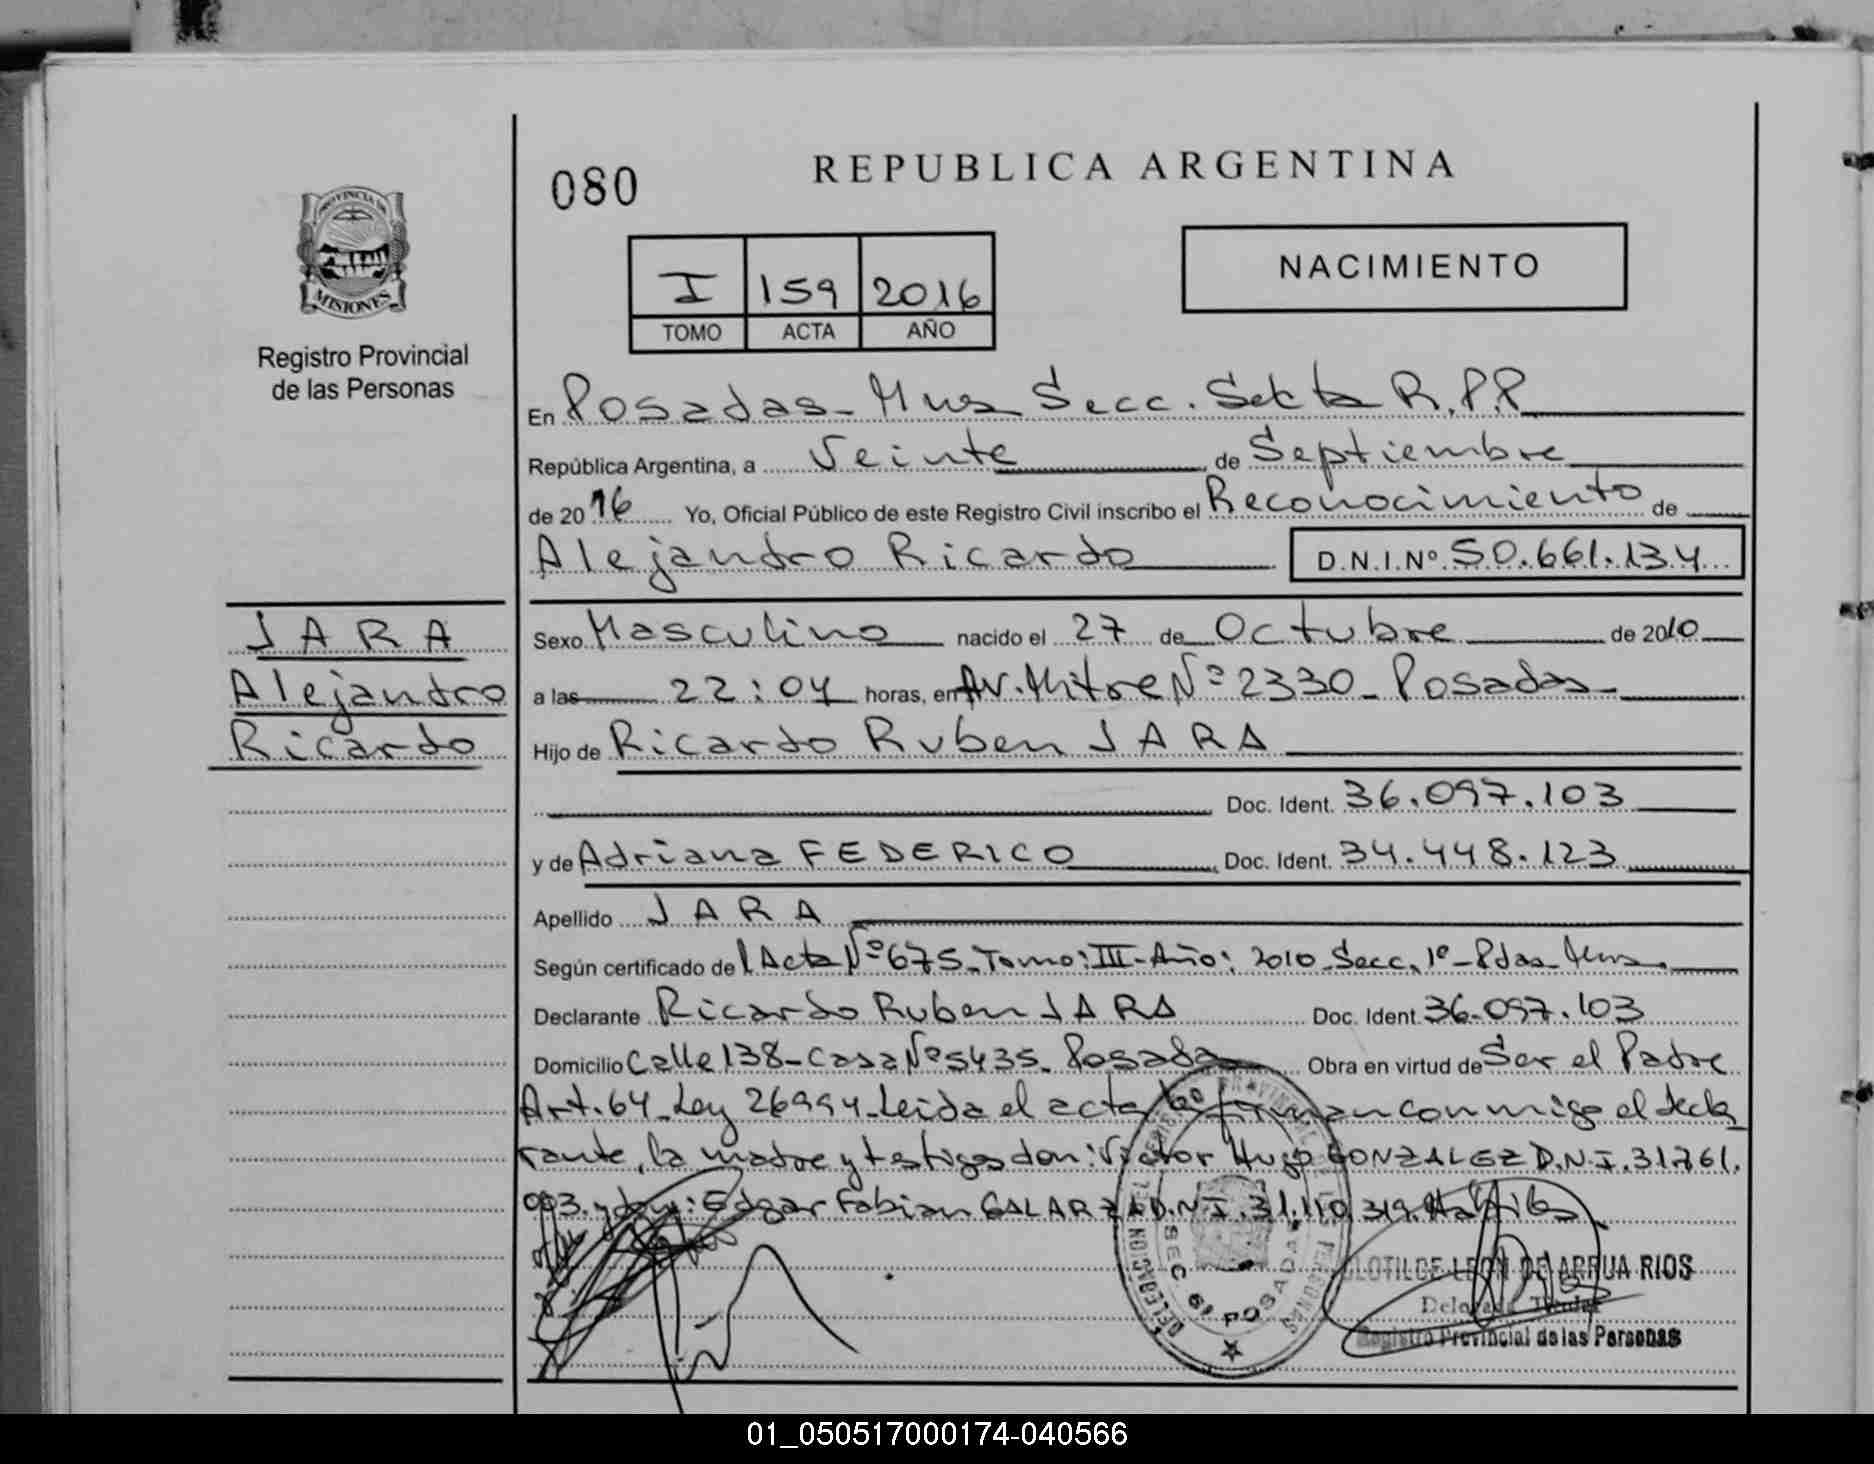 080
REPUBLICA ARGENTINA
PROVINCIA DE
MISIONES
Registro Provincial
de las Personas
I 159 2016
TOMO ACTA AÑO
NACIMIENTO
En Posadas - Mnes Secc. Sexta R.P.P
República Argentina, a Veinte de Septiembre
de 2016 Yo, Oficial Público de este Registro Civil inscribo el Reconocimiento de
Alejandro Ricardo D.N.I.Nº 50.661.134
JARA
Alejandro
Ricardo
Sexo Masculino nacido el 27 de Octubre de 2010
a las 22:04 horas, en Av. Mitre Nº 2330 - Posadas
Hijo de Ricardo Ruben JARA
Doc. Ident. 36.097.103
y de Adriana FEDERICO Doc. Ident. 34.448.123
Apellido JARA
Según certificado de Acta Nº 675 - Tomo: III - Año: 2010 - Secc. 1º - Pdas - Mnes.
Declarante Ricardo Ruben JARA Doc. Ident. 36.097.103
Domicilio Calle 138 - Casa Nº 5435 - Posadas Obra en virtud de Ser el Padre
Art. 64 - Ley 26994 - Leida el acta la firman conmigo el decla
rante, la madre y testigos don: Victor Hugo GONZALEZ D.N.I. 31.761.
003. y don: Edgar Fabian GALARZA D.N.I. 31.110.319.
DELEGACION DEL REGISTRO PROVINCIAL DE LAS PERSONAS
SEC 6ª POSADAS
CLOTILDE LEON DE ARRUA RIOS
Delegada Titular
Registro Provincial de las Personas
01_050517000174-040566